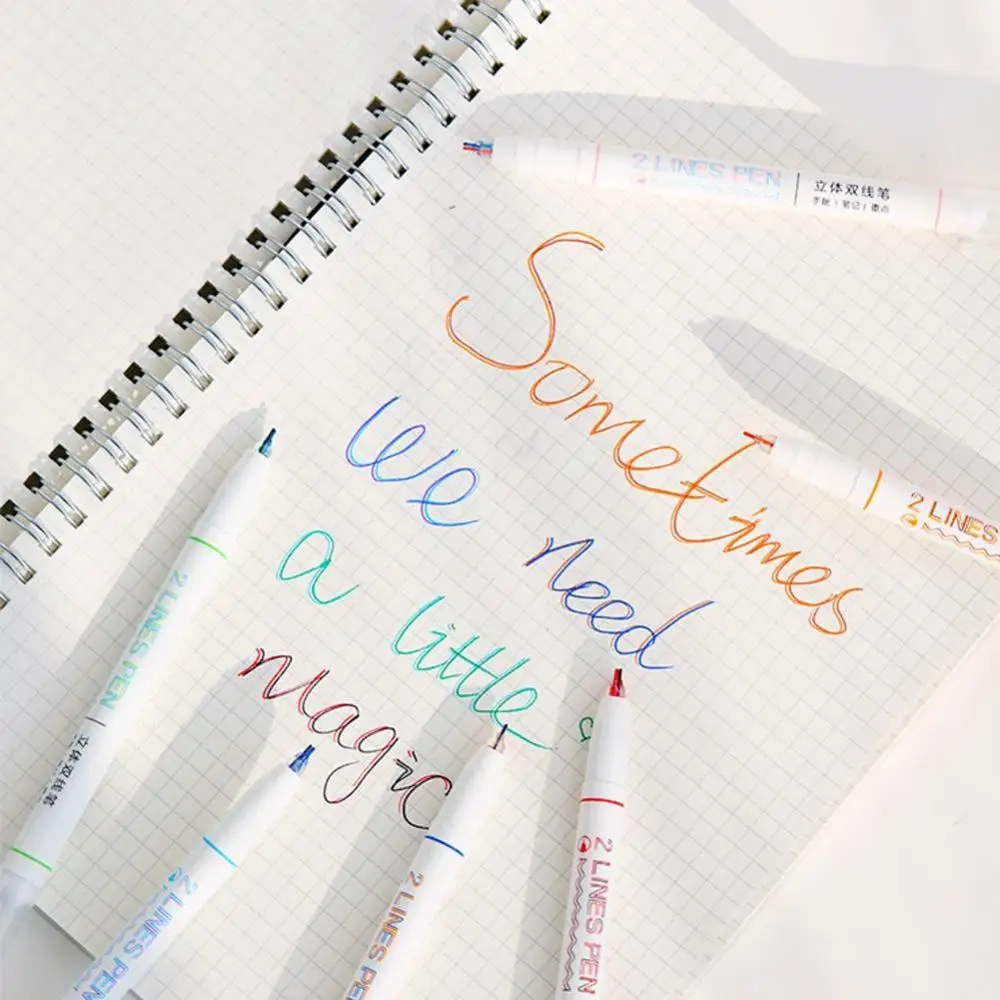 2 LINES PEN
立体双线笔
手账 | 笔记 | 重点
Sometimes
2 LINES
we need
a little
magic
2 LINES PEN
立体双线笔
2 LINES PEN
2 LINES PEN
2 LINES PEN